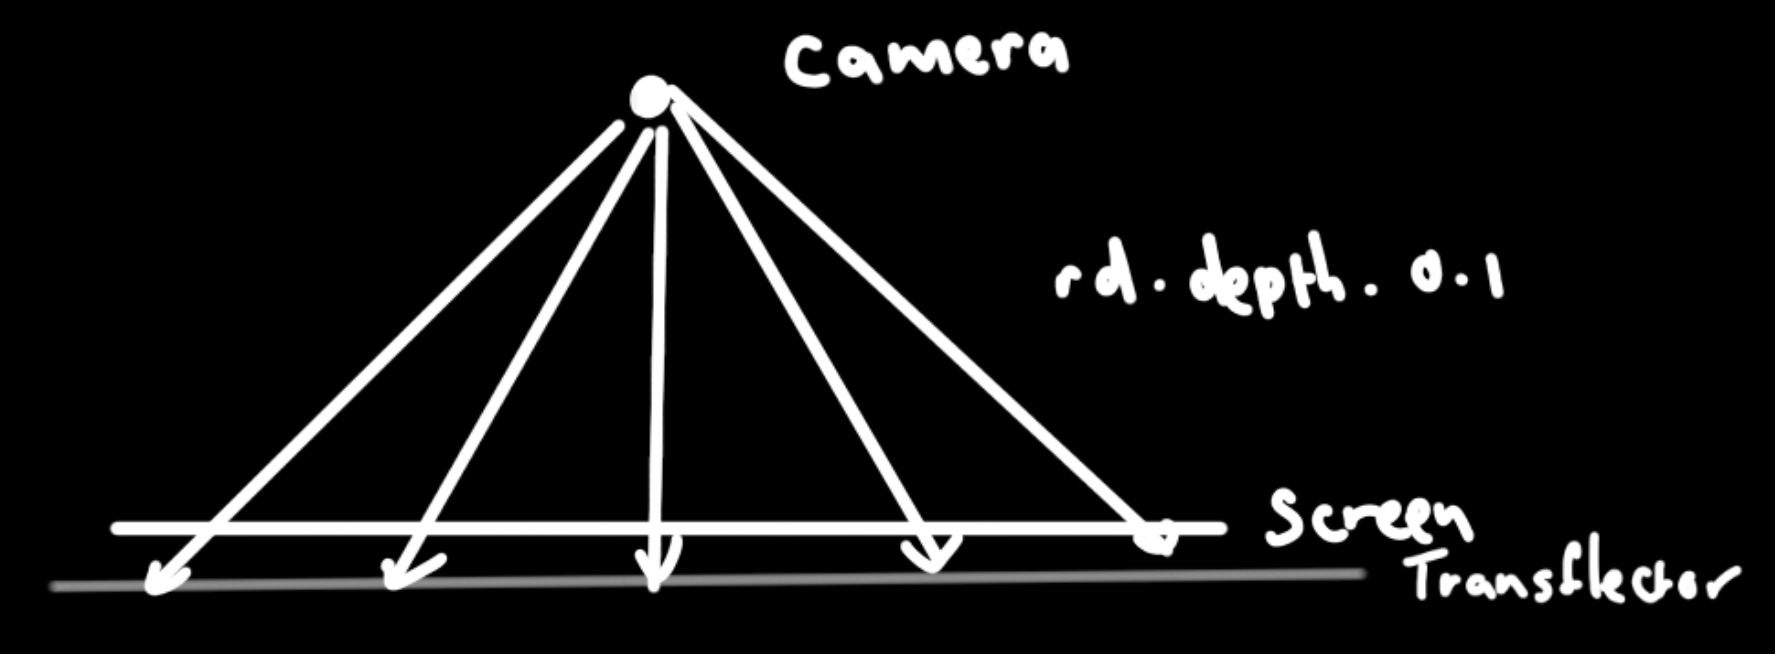 Camera
rd.depth.0.1
Screen
Transflector